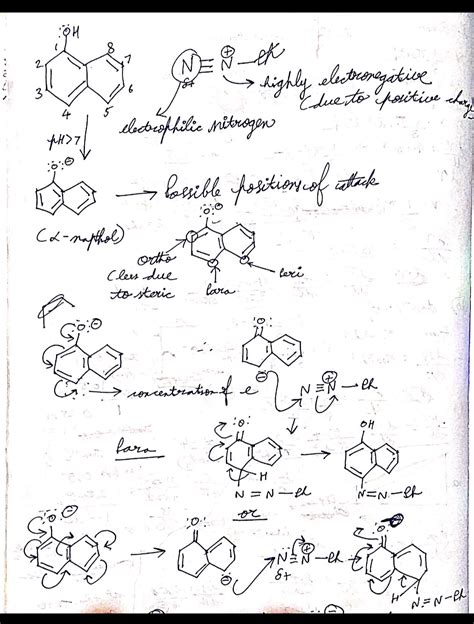 OH
1
8
2
7
3
6
4
5
N≡N⊕—Ph
δ+
highly electronegative
(due to positive charg
electrophilic nitrogen
pH>7
:O:⊖
→ Possible positions of attack
(α-napthol)
:O:⊖
ortho
(less due
to steric
para
peri
:O:⊖
:O:
⊖
→ concentration of e
N≡N⊕—Ph
para
:O:
H
N=N—Ph
OH
N=N—Ph
or
:O:⊖
:O:
⊖
N≡N⊕—Ph
δ+
:O:
H
N=N—Ph